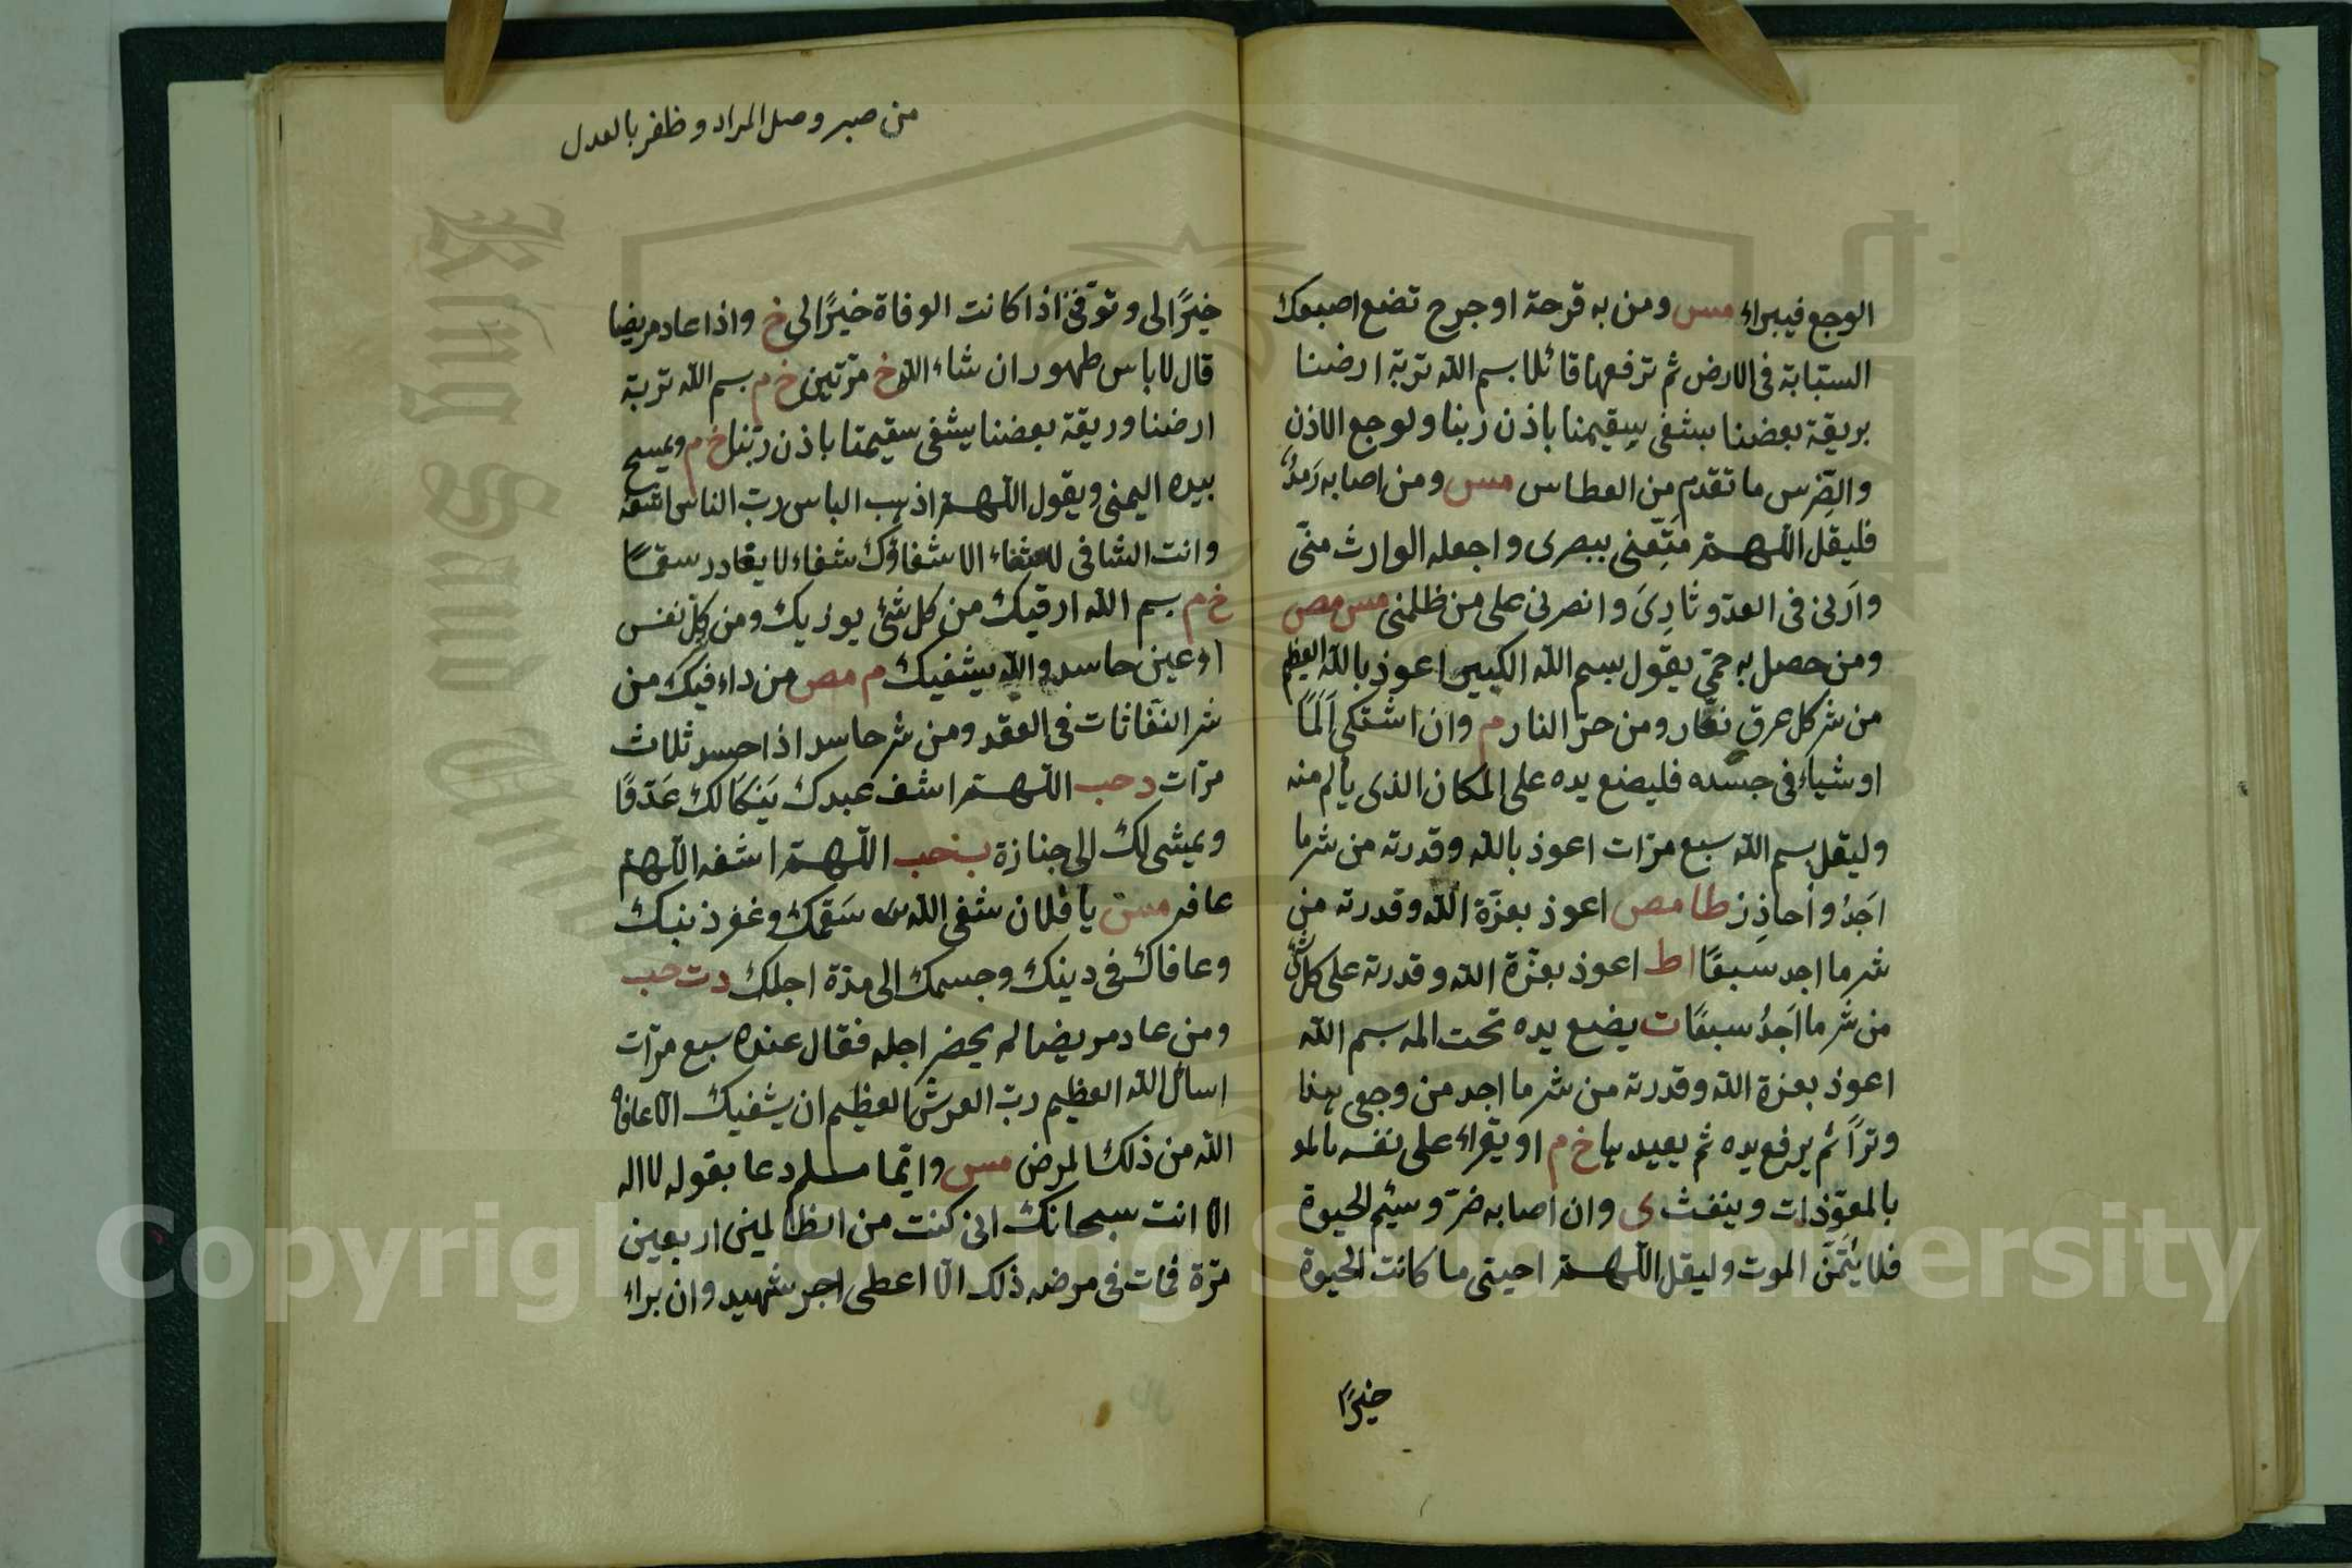 الوجع فيبراء مس ومن به قرحة او جرح تضع اصبعك
السبّابة فى الارض ثم ترفعها قائلا بسم الله تربة ارضنا
بريقة بعضنا يشفى سقيمنا باذن ربنا ولوجع الاذن
والضِرس ما تقدم من العطاس مس ومن اصابه رَمَدٌ
فليقل اللهم مَتِّعنى ببصرى واجعله الوارث منّى
وارَنى فى العدو ثارِىَ وانصرنى على من ظلمنى مس مص
ومن حصل به حمّى يقول بسم الله الكبير اعوذ بالله العظيم
من شر كل عرق نعّار ومن حرّ النار م وان اشتكى اَلَمًا
او شياء فى جسده فليضع يده على المكان الذى يألم منه
وليقل بسم الله سبع مرّات اعوذ بالله وقدرته من شر ما
اَجَدُ واُحاذِر طا مص اعوذ بعزّة الله وقدرته من
شر ما اجد سبعًا اط اعوذ بعزّة الله وقدرته على كل شئ
من شر ما اَجَدُ سبعًا ت يضع يده تحت المه بسم الله
اعوذ بعزة الله وقدرته من شر ما اجد من وجعى هذا
وترًا ثم يرفع يده ثم يعيدها خ م او يقراء على نفسه بالمو
بالمعوّذات وينفث ى وان اصابه ضرّ وسئم الحيوة
فلا يتمنّ الموت وليقل اللهم احينى ما كانت الحيوة
خيرًا
من صبر وصل المراد وظفر بالعدل
خيرًا لى وتوفّنى اذا كانت الوفاة خيرًا لى خ واذا عاد مريضا
قال لا باس طهور ان شاء الله خ مرّتين خ م بسم الله تربة
ارضنا وريقة بعضنا يشفى سقيمنا باذن ربّنا خ م ويمسح
بيده اليمنى ويقول اللهم اذهب الباس ربّ الناس اشفه
وانت الشافى لا شفاء الا شفاؤك شفاء لا يغادر سقمًا
خ م بسم الله ارقيك من كل شئ يوذيك ومن كلّ نفس
او عين حاسد والله يشفيك م مص من داء فيك من
شر النفّاثات فى العقد ومن شر حاسد اذا حسد ثلاث
مرّات د حب اللهم اشف عبدك يَنكَا لك عَدوًّا
ويمشى لك الى جنازة حب اللهم اشفه اللهم
عافه مس يا فلان شفى الله سَقمك وغفر ذنبك
وعافاك فى دينك وجسمك الى مدّة اجلك دت حب
ومن عاد مريضا لم يحضر اجله فقال عنده سبع مرّات
اسأل الله العظيم ربّ العرش العظيم ان يشفيك الّا عافاه
الله من ذلك المرض مس وايّما مسلم دعا بقوله لا اله
الا انت سبحانك انى كنت من الظالمين اربعين
مرّة فمات فى مرضه ذلك الّا اعطى اجر شهيد وان براء
Copyright © King Saud University
King Saud University